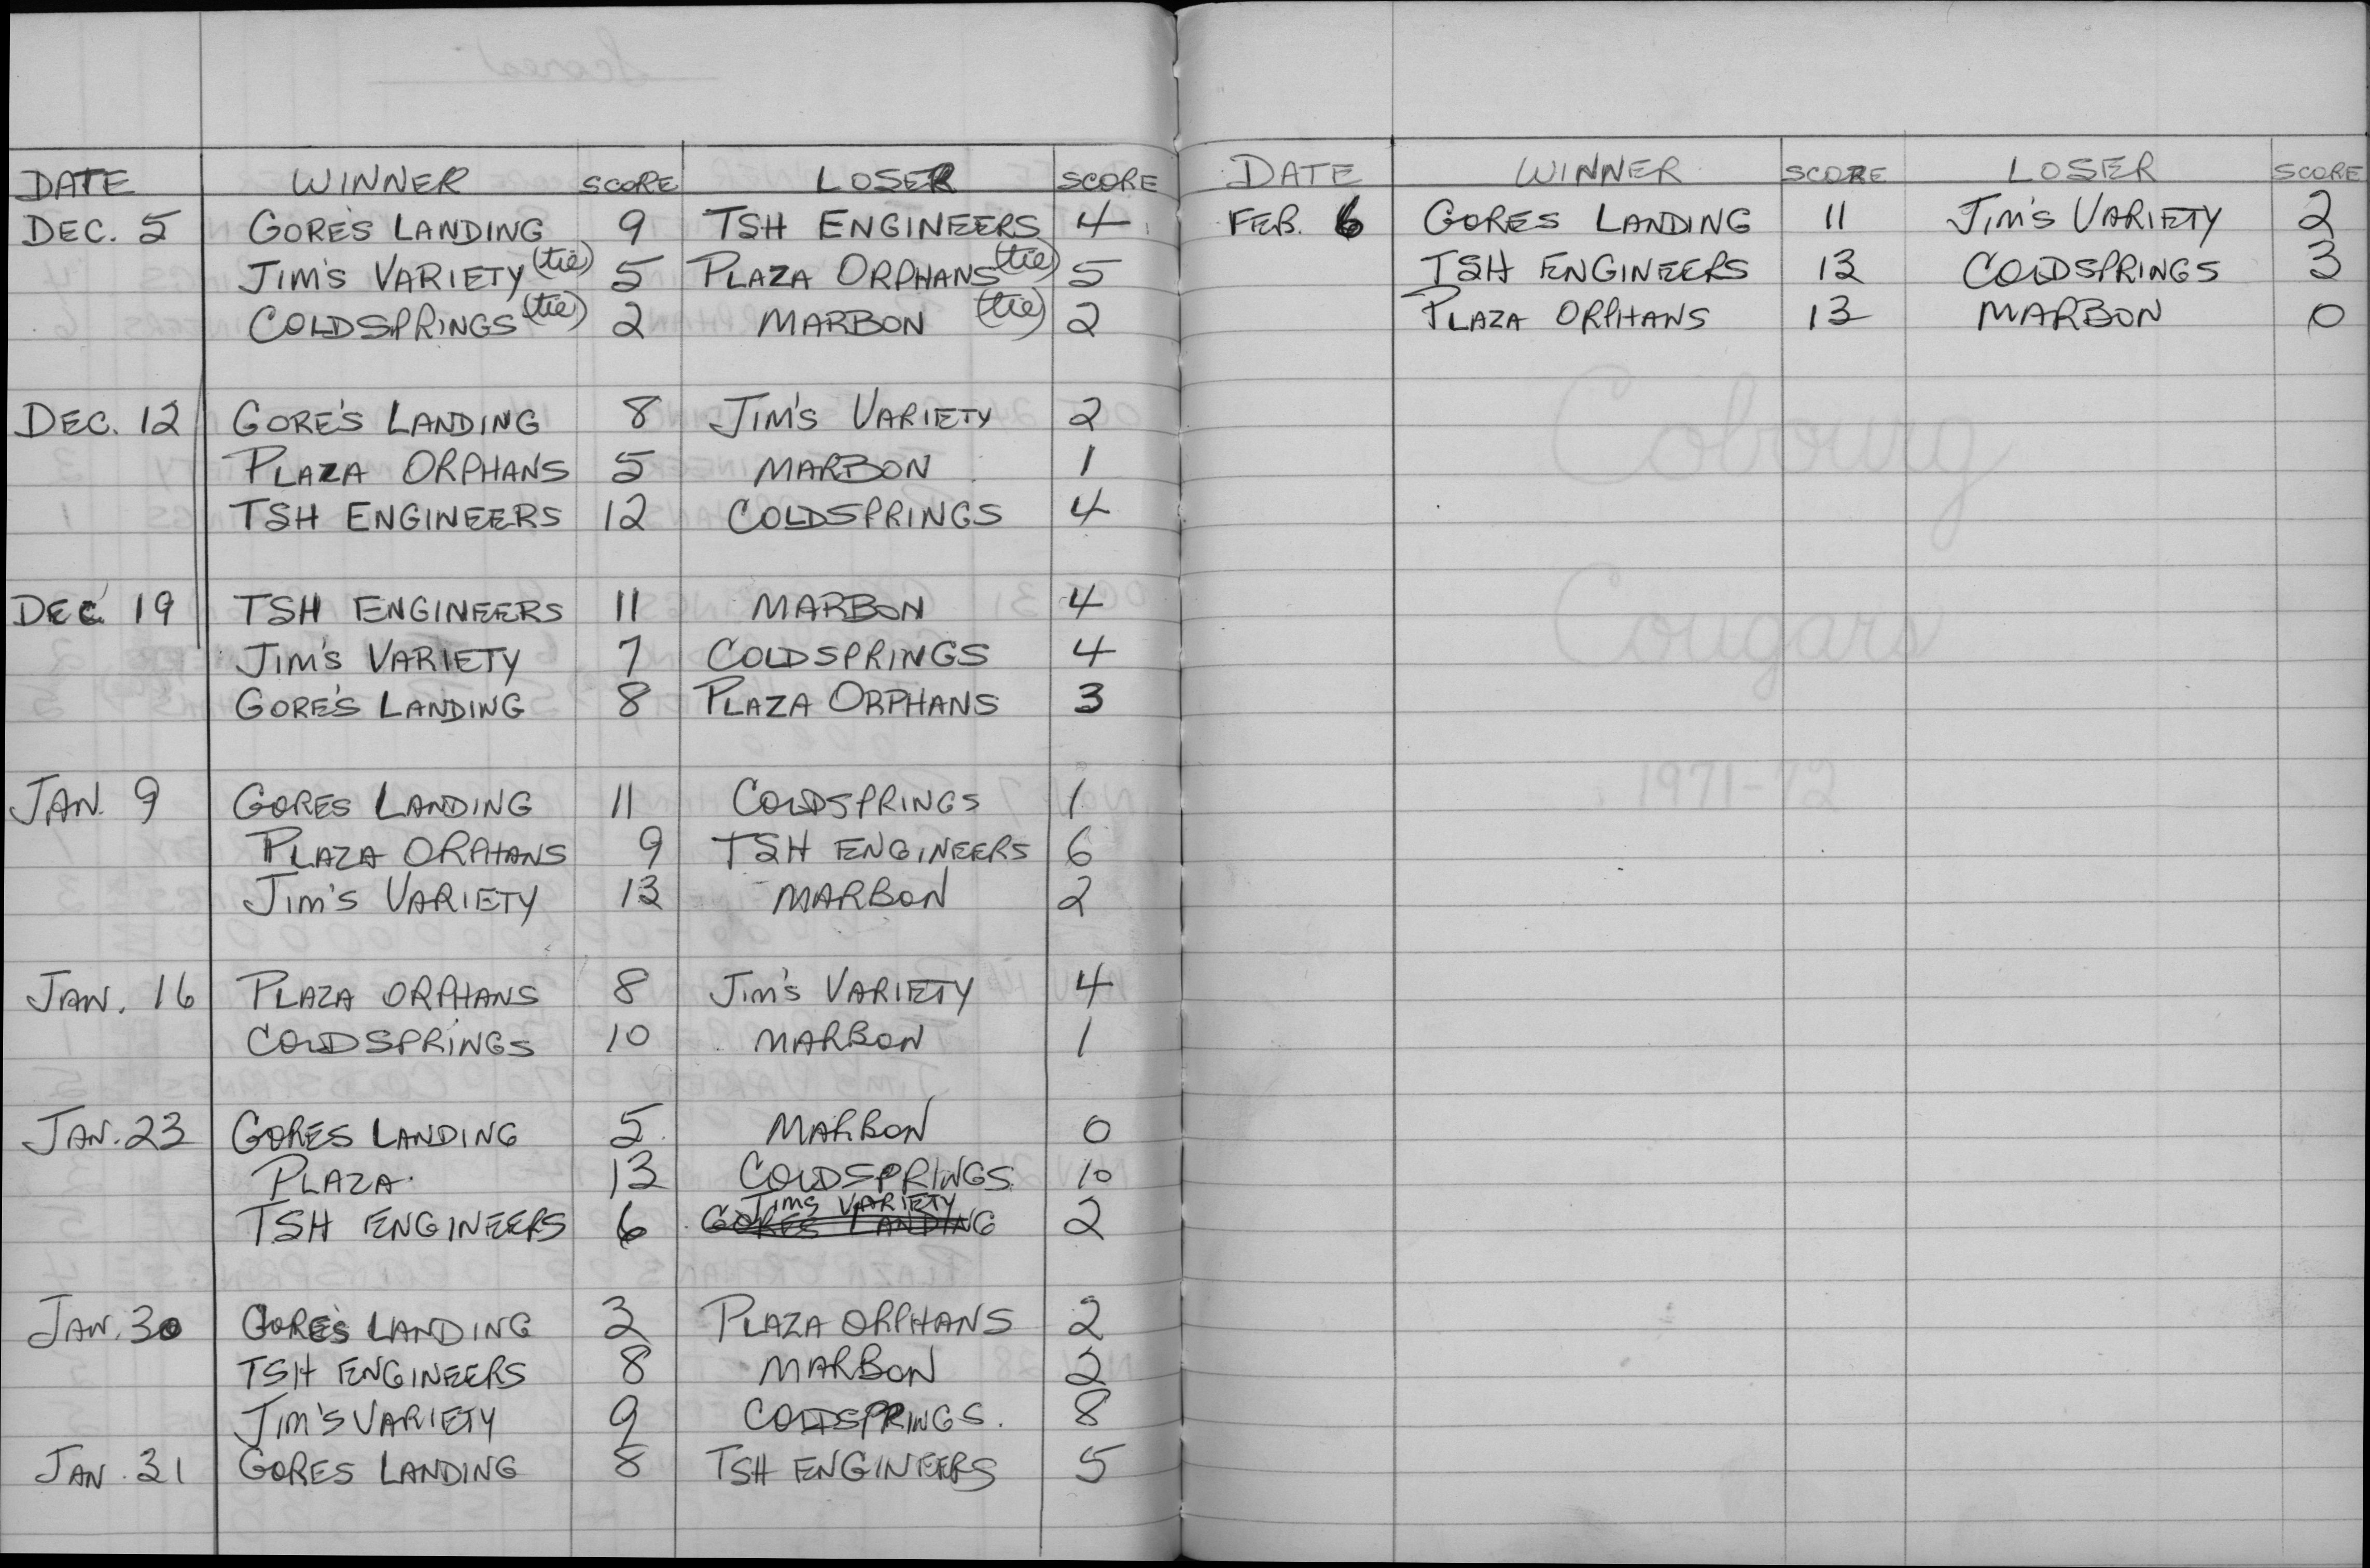 DATE WINNER SCORE LOSER SCORE
DEC. 5 GORE'S LANDING 9 TSH ENGINEERS 4
JIM'S VARIETY (tie) 5 PLAZA ORPHANS (tie) 5
COLDSPRINGS (tie) 2 MARBON (tie) 2
DEC. 12 GORE'S LANDING 8 JIM'S VARIETY 2
PLAZA ORPHANS 5 MARBON 1
TSH ENGINEERS 12 COLDSPRINGS 4
DEC. 19 TSH ENGINEERS 11 MARBON 4
JIM'S VARIETY 7 COLDSPRINGS 4
GORE'S LANDING 8 PLAZA ORPHANS 3
JAN. 9 GORES LANDING 11 COLDSPRINGS 1
PLAZA ORPHANS 9 TSH ENGINEERS 6
JIM'S VARIETY 13 MARBON 2
JAN. 16 PLAZA ORPHANS 8 JIM'S VARIETY 4
COLDSPRINGS 10 MARBON 1
JAN. 23 GORES LANDING 5 MARBON 0
PLAZA. 13 COLDSPRINGS 10
JIMS VARIETY
TSH ENGINEERS 6 GORES LANDING 2
JAN. 30 GORE'S LANDING 3 PLAZA ORPHANS 2
TSH ENGINEERS 8 MARBON 2
JIM'S VARIETY 9 COLDSPRINGS. 8
JAN. 31 GORES LANDING 8 TSH ENGINEERS 5
DATE WINNER SCORE LOSER SCORE
FEB. 6 GORES LANDING 11 JIM'S VARIETY 2
TSH ENGINEERS 13 COLDSPRINGS 3
PLAZA ORPHANS 13 MARBON 0
Cobourg
Cougars
1971-72